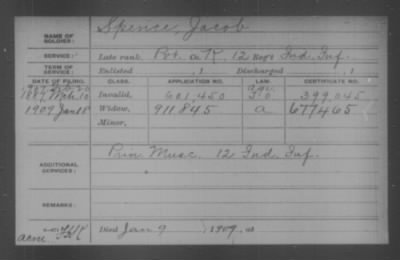 NAME OF SOLDIER: Spence, Jacob
SERVICE: Late rank, Pvt. Co K, 12 Reg't Ind. Inf.
TERM OF SERVICE: Enlisted 1 Discharged 1
DATE OF FILING. CLASS. APPLICATION NO. LAW. CERTIFICATE NO.
1907 Feb 20 age
1887 Mch 10 Invalid, 601,450 399,045
1909 Jan 18 Widow, 911845 a 677465
Minor,
ADDITIONAL SERVICES: Prin Musc. 12 Ind. Inf.
REMARKS:
Died Jan 9 1909, at
acne